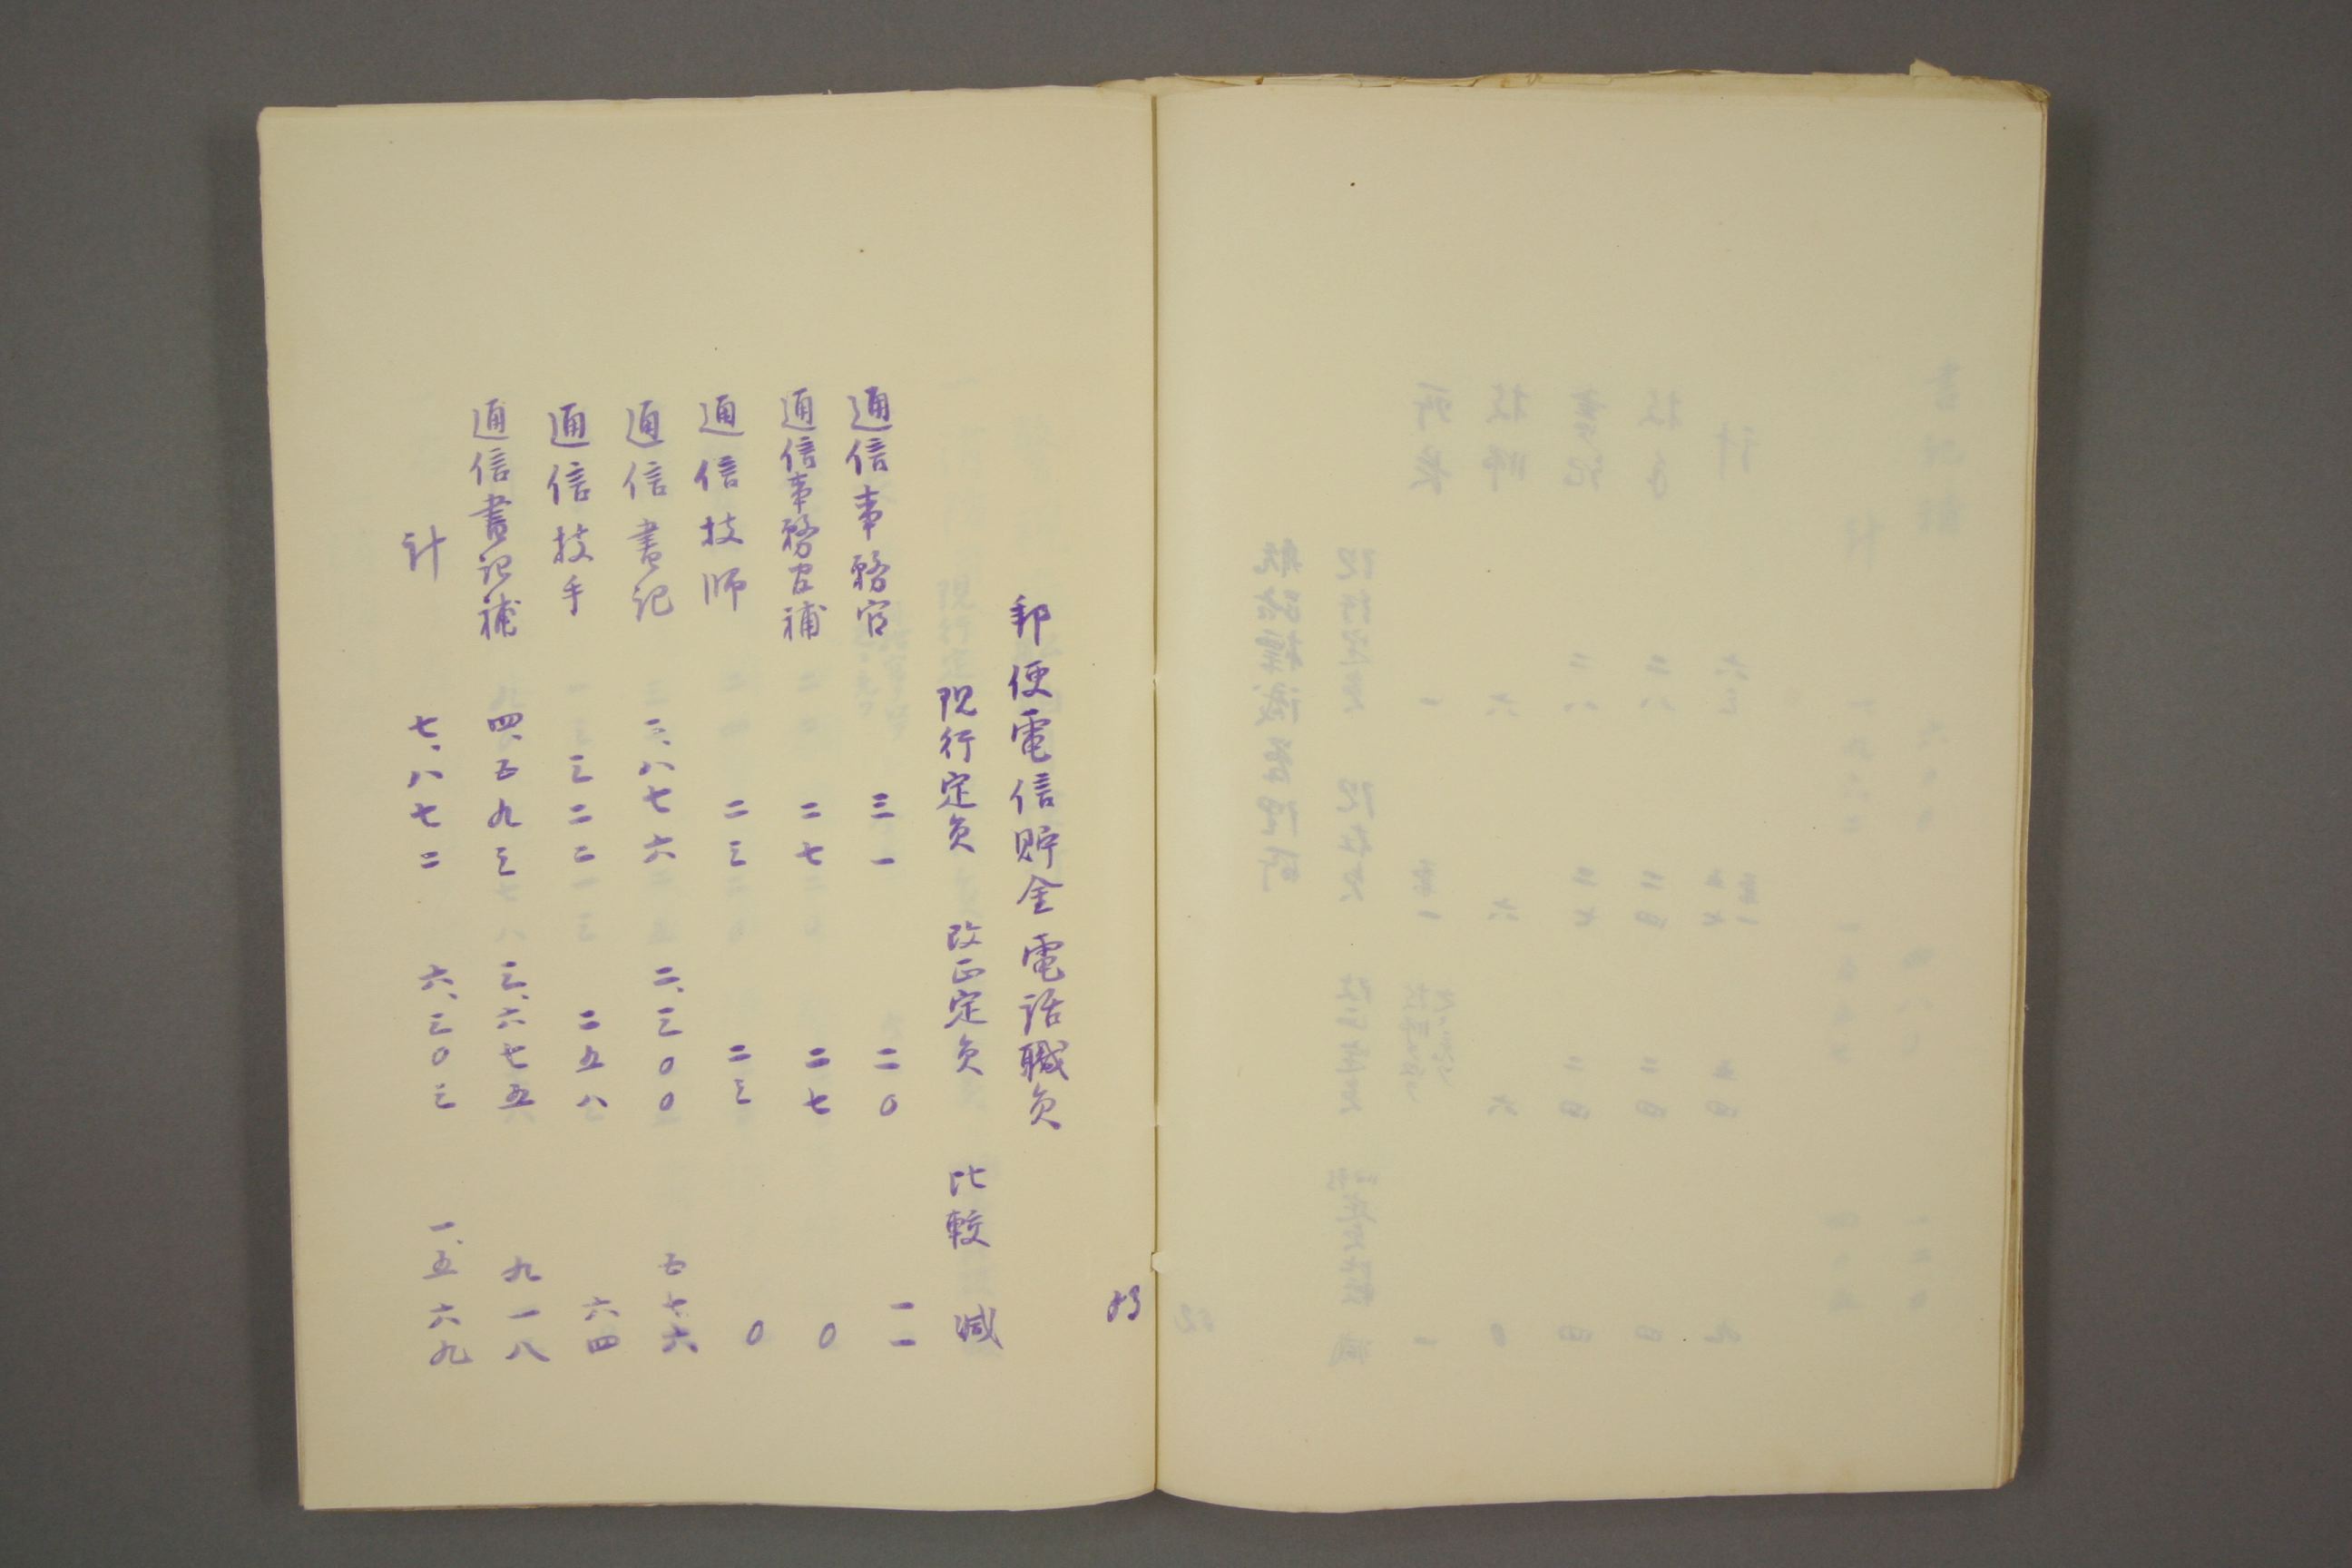 83
郵便電信貯金電話職員
現行定員 改正定員 比較減
通信事務官 三一 二〇 一一
通信事務官補 二七 二七 〇
通信技師 二三 二三 〇
通信書記 二、八七六 二、三〇〇 五七六
通信技手 三二二 二五八 六四
通信書記補 四、五九三 三、六七五 九一八
計 七、八七二 六、三〇三 一、五六九